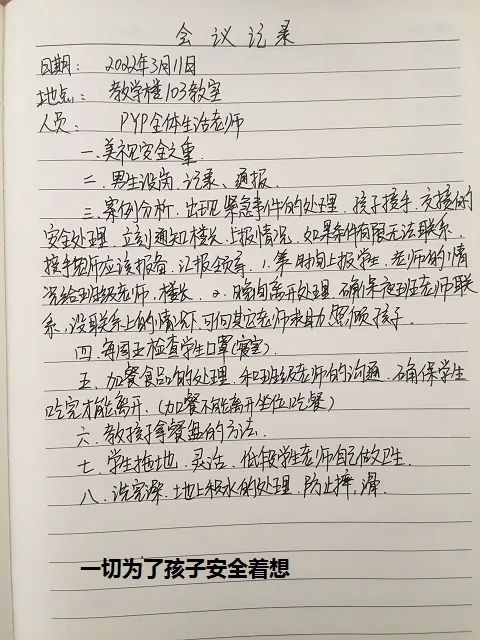 会议记录
日期: 2022年3月11日
地点: 教学楼103教室
人员: PYP全体生活老师
一.美视安全之重.
二.男生设岗、记录、通报.
三.案例分析.出现紧急事件的处理.孩子接手.交接的
安全处理.立刻通知楼长.上报情况.如果条件有限无法联系,
接手老师应该报备.汇报全 1.第一时间上报学生.老师的情
况给班级老师,楼长. 2.晚间离开处理.确保夜班老师联
系,没联系上的情况可向其它老师求助照顾孩子.
四.每周五检查学生口罩(寝室)
五.加餐食品的处理.和班级老师的沟通.确保学生
吃完才能离开.(加餐不能离开坐位吃餐)
六.教孩子拿餐盘的方法.
七.学生拖地.灵活.低段学生老师自己做卫生.
八.洗完澡.地上积水的处理.防止摔,滑.
一切为了孩子安全着想